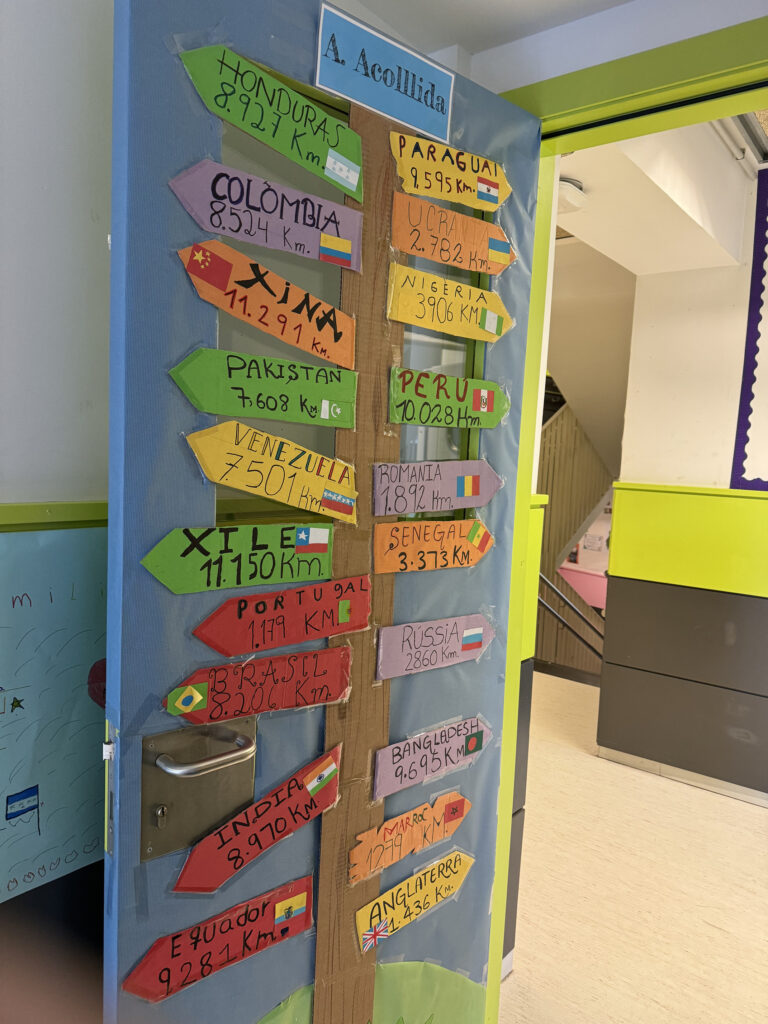 A. Acolllida
HONDURAS
8.927 Km.
COLÒMBIA
8.524 Km.
XINA
11.291 Km.
PAKISTAN
7.608 Km
VENEZUELA
7.501 Km.
XILE
11.150 Km.
PORTUGAL
1.179 KM.
BRASIL
8.206 Km
INDIA
8.970 KM.
EQUADOR
9.281 Km.
PARAGUAI
9.595 Km.
UCRAÏ
2.782 Km.
NIGÈRIA
3906 KM.
PERÚ
10.028 Km.
ROMANIA
1.892 KM.
SENEGAL
3.373 Km.
RÚSSIA
2860 Km.
BANGLADESH
9.695 Km
MARROC
1279 KM.
ANGLATERRA
1.436 Km.